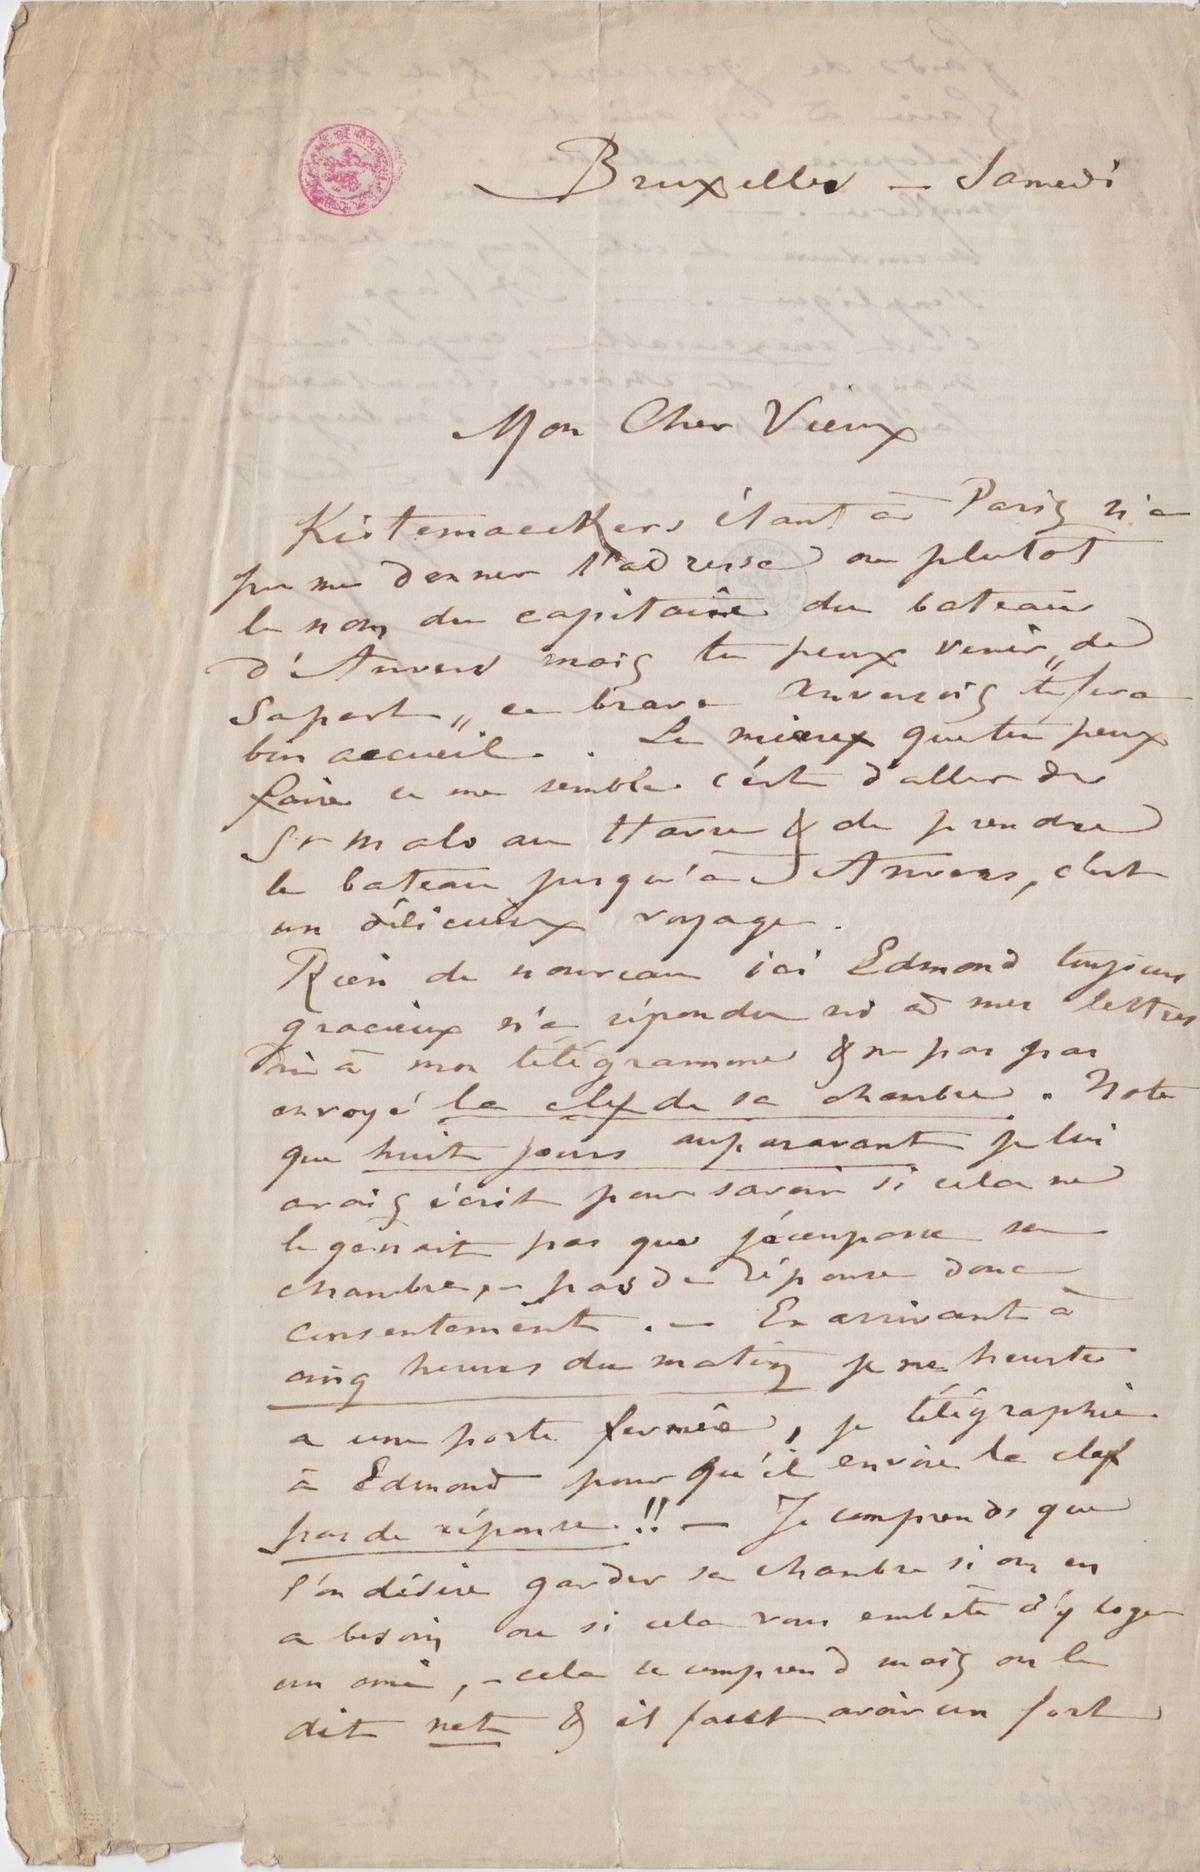 Bruxelles — Samedi
Mon Cher Vieux
Kistemaeckers étant à Paris n'a
pu me donner l'adresse ou plutot
le nom du capitaine du bateau
d'Anvers mais tu peux venir „ de
Sapart „ ce brave Anversois te fera
bon accueil. . Le mieux que tu peux
faire ce me semble c'est d'aller de
St Malo au Havre & de prendre
le bateau jusqu'à Anvers, c'est
un délicieux voyage.
Rien de nouveau ici Edmond toujours
gracieux n'a répondu ni à mes lettres
ni à mon télégramme & n'a pas
envoyé la clef de sa chambre. Note
que huit jours auparavant je lui
avais écrit pour savoir si cela ne
le gênait pas que j'occupasse sa
chambre, — pas de réponse donc
consentement. — En arrivant à
cinq heures du matin je me heurte
a une porte fermée, je télégraphie
à Edmond pour qu'il envoie la clef
pas de réponse!! — Je comprends que
l'on désire garder sa chambre si on en
a besoin ou si cela vous embête d'y loger
un ami, — cela se comprend mais on le
dit net & il faut avoir un fort